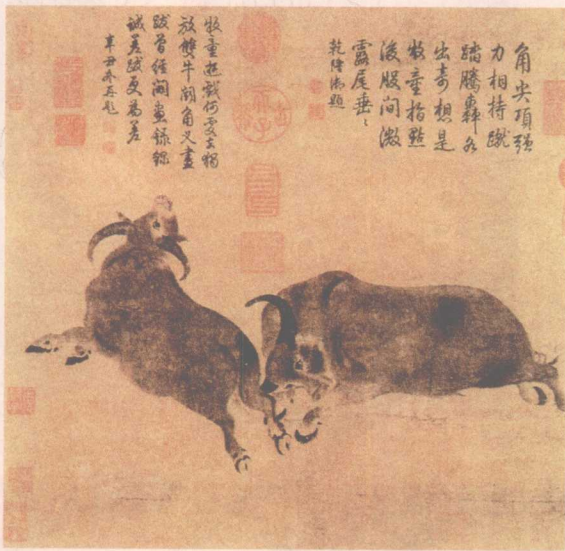 角尖項強
力相持蹴
踏騰轟各
出奇想是
牧童指點
後股間微
露尾垂〻
乾隆御題
牧童遊戲何處去獨
放雙牛鬭角叉畫
跋曾經闢畫錄錄
誠差跋更為差
辛丑再題